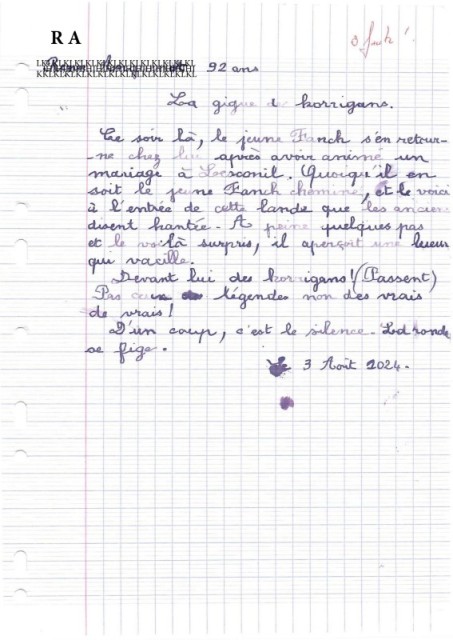 R A
3 fautes
92 ans
La gigue de korrigans.
Ce soir là, le jeune Fanch s'en retour-
ne chez lui après avoir animé un
mariage à Loesconil. Quoiqu'il en
soit le jeune Fanch chemine, et le voici
à l'entrée de cette lande que les anciens
disent hantée. A peine quelques pas
et le voilà surpris, il aperçoit une lueur
qui vacille.
Devant lui des korrigans! (Passent)
Pas ceux de légendes non des vrais
de vrais!
D'un coup, c'est le silence. La ronde
se fige.
3 Août 2024.